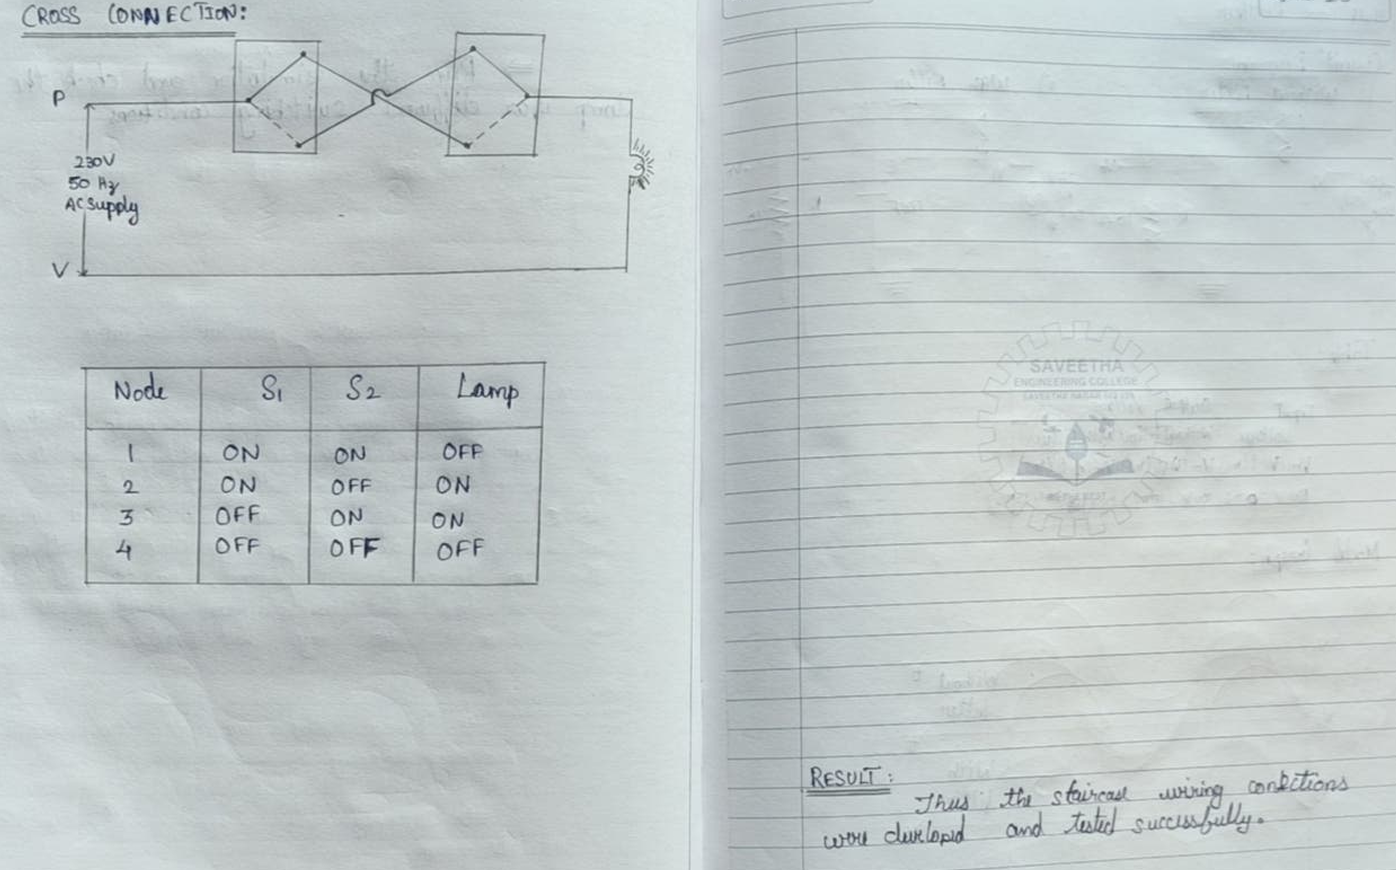 CROSS CONNECTION:
P
230V
50 Hz
AC Supply
V
Node S1 S2 Lamp
1 ON ON OFF
2 ON OFF ON
3 OFF ON ON
4 OFF OFF OFF
SAVEETHA
ENGINEERING COLLEGE
RESULT:
Thus the staircase wiring conections
were developed and tested successfully.